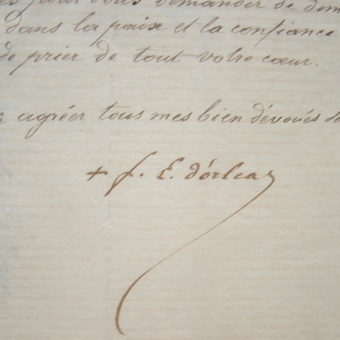 pour vous demander de dem
dans la paix et la confiance
de prier de tout votre cœur.
agréer tous mes bien dévoués
+ f. E. d'orléa